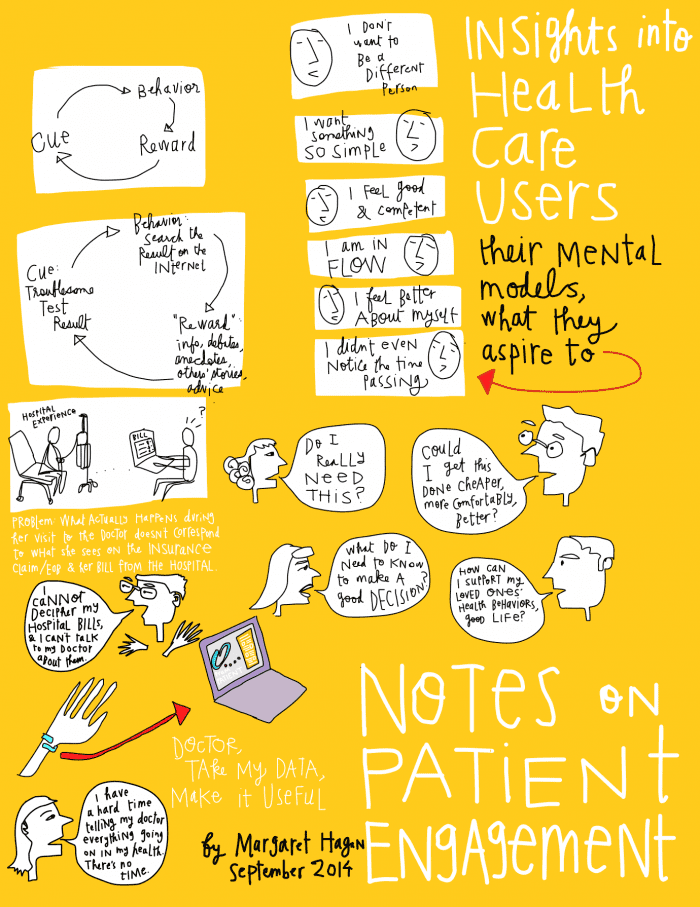 INSights into
HeaLth
Care
Users
their Mental
models,
what they
aspire to
I DON't
want to
Be a
Different
Person
I want
something
SO SIMPLE
I Feel good
& competent
I am in
FLOW
I feel Better
About myself
I didnt even
Notice the time
Passing
Behavior
Cue
Reward
Behavior:
Search the
Result on the
INternet
Cue:
Troublesome
Test
Result
"Reward":
info, debates,
anecdotes,
others' stories,
advice
Hospital
Experience
?
BILL
Problem What Actually Happens during
her visit to the Doctor doesnt correspond
to what she sees on the INSurance
Claim/EOB & her Bill from the Hospital.
Do I
Really
Need
This?
Could
I get this
Done cheaper,
more comfortably,
Better?
What Do I
Need to Know
to make A
good DECISION?
How can
I support my
Loved ones'
Health Behaviors,
good Life?
I
caNNot
Decipher my
Hospital Bills,
& I can't talk
to my Doctor
about them.
Doctor,
Take My Data,
Make it Useful
I have
a hard time
telling my doctor
everything going
on in my health.
There's no
time.
Notes on
Patient
Engagement
by Margaret Hagan
September 2014